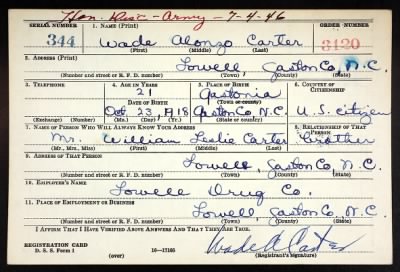 Hon. Disc - Army - 7-4-46
SERIAL NUMBER 1. NAME (Print) ORDER NUMBER
344 Wade Alonzo Carter 3120
(First) (Middle) (Last)
2. ADDRESS (Print)
Lowell, Gaston Co, N.C.
(Number and street or R. F. D. number) (Town) (County) (State)
3. TELEPHONE 4. AGE IN YEARS 5. PLACE OF BIRTH 6. COUNTRY OF CITIZENSHIP
21 Gastonia
DATE OF BIRTH (Town or county)
Oct 23, 1918 Gaston Co N.C. U.S. citizen
(Exchange) (Number) (Mo.) (Day) (Yr.) (State or country)
7. NAME OF PERSON WHO WILL ALWAYS KNOW YOUR ADDRESS 8. RELATIONSHIP OF THAT PERSON
Mr. William Leslie Carter Brother
(Mr., Mrs., Miss) (First) (Middle) (Last)
9. ADDRESS OF THAT PERSON
Lowell, Gaston Co, N.C.
(Number and street or R. F. D. number) (Town) (County) (State)
10. EMPLOYER'S NAME
Lowell Drug Co.
11. PLACE OF EMPLOYMENT OR BUSINESS
Lowell, Gaston Co, N.C.
(Number and street or R. F. D. number) (Town) (County) (State)
I AFFIRM THAT I HAVE VERIFIED ABOVE ANSWERS AND THAT THEY ARE TRUE.
REGISTRATION CARD
D. S. S. Form 1 (over) 16—17105 Wade A Carter
(Registrant's signature)